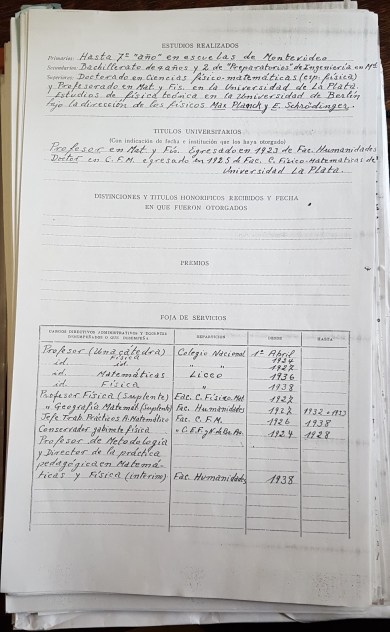 ESTUDIOS REALIZADOS
Primarios: Hasta 7º "año" en escuelas de Montevideo
Secundarios: Bachillerato de 4 años y 2 de "Preparatorios" de Ingeniería en Mt.
Superiores: Doctorado en Ciencias físico-matemáticas (esp. física)
y Profesorado en Mat. y Fis. en la Universidad de La Plata.
Estudios de física teórica en la Universidad de Berlín
bajo la dirección de los físicos Max Planck y E. Schrödinger.
TITULOS UNIVERSITARIOS
(Con indicación de fecha e institución que los haya otorgado)
Profesor en Mat. y Fís. Egresado en 1923 de Fac. Humanidades
Doctor en C.F.M. egresado en 1925 de Fac. C. Físico-Matemáticas de
Universidad La Plata.
DISTINCIONES Y TITULOS HONORIFICOS RECIBIDOS Y FECHA
EN QUE FUERON OTORGADOS
PREMIOS
FOJA DE SERVICIOS
CARGOS DIRECTIVOS ADMINISTRATIVOS Y DOCENTES REPARTICION DESDE HASTA
DESEMPEÑADOS O QUE DESEMPEÑA
Profesor (Una cátedra) Colegio Nacional 1º Abril
Física 1924
id. id. " " 1927
id. Matemáticas Liceo 1936
id. Física " 1938
Profesor Física (Suplente) Fac. C. Físico-Mat.
" Geografía Matemát. (suplente) Fac. Humanidades 1932
Jefe Trab. Prácticos A. Matemático Fac. C. F. M. 1926 1938
Conservador gabinete física 1924 1928
Profesor de Metodología
y Director de la práctica
pedagógica en Matemá-
ticas y Física (interino) Fac. Humanidades 1938